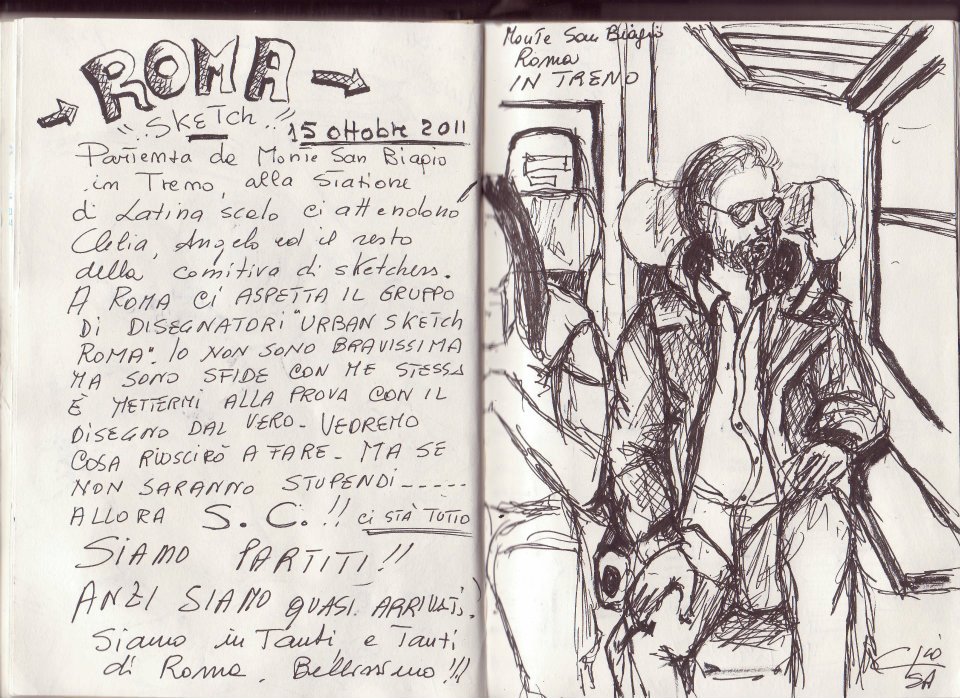 ROMA
"..SKETCh.."
15 ottobre 2011
Partenza da Monte San Biagio
in Treno, alla Statione
di Latina scalo ci attendono
Clelia, Angelo ed il resto
della comitiva di sketchers.
A ROMA CI ASPETTA IL GRUPPO
DI DISEGNATORI "URBAN SKETCH
ROMA". IO NON SONO BRAVISSIMA
MA SONO SFIDE CON ME STESSA
È METTERMI ALLA PROVA CON IL
DISEGNO DAL VERO - VEDREMO
COSA RIUSCIRÒ A FARE - MA SE
NON SARANNO STUPENDI-----
ALLORA S. C.!! CI STÀ TUTTO
SIAMO PARTITI!!
ANZI SIAMO QUASI ARRIVATI.
Siamo in Tanti e Tanti
di Roma. Bellissimo!!!
Monte San Biagio
Roma
IN TRENO